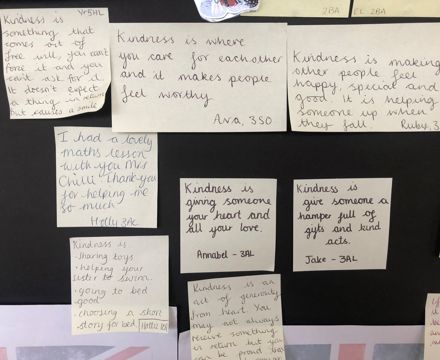 Yr5HL
Kindness is
something that
comes out of
free will, you can't
force it and you
can't ask for it.
It doesn't expect
a thing in return
but a smile
Kindness is where
you care for eachother
and it makes people
feel worthy
Ava, 3SO
2BA
EL 2BA
Kindness is making
other people feel
happy, special and
good. It is helping
someone up when
they fall. Ruby, 3
I had a lovely
maths lesson
with you Mrs
Chilli thank you
for helping me
so much
Holly 3AL
Kindness is
giving someone
your heart and
all your love.
Annabel - 3AL
Kindness is
give someone a
hamper full of
gyts and kind
acts.
Jake - 3AL
Kindness is
- sharing toys
- helping your
sister to swim.
- going to bed
good
- choosing a short
story for bed
Kindness is an
act of generosity
from heart You
may not always
receive something
in return but you
can be proud